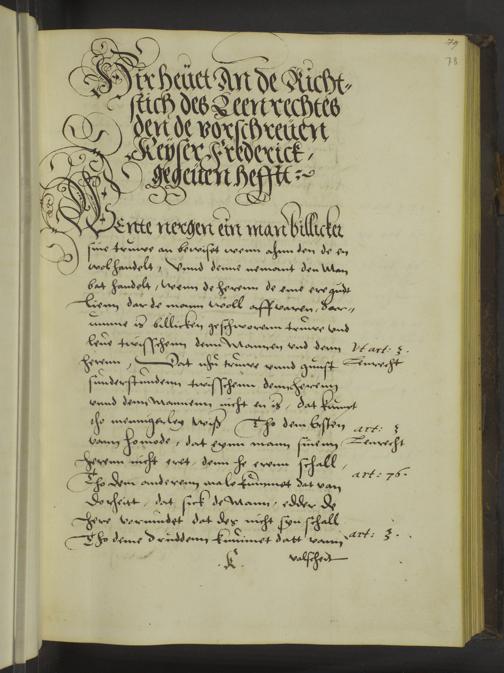 79
78
Hir heuet An de Richt-
stich des Leenrechtes
den de vorschreuen
Keyser Frederick,
gegeuen hefftt :~
Wente nergen ein man billicker
sine truwe an bewiset wenn ahnn den de en
wol handelt, Vnnd denne nemant den Man
bat handelt, wenn de herenn de eme ere gudt
lienn dar de mann woll aff waren, dar-
umme is billicken geschwerenn truwe vnd
leue twisschenn dem Mannen vnd dem
herenn, Dat nhu truwe vnnd gunst
sunderstundenn twisschenn dem herenn
vnnd dem Mannenn nicht en is, dat kumpt
tho mennigerley wiß Tho dem ersten
vann homode, dat eynn mann sinenn
herenn nicht eret, denn he erenn schall,
Tho dem anderenn male kummet dat van
dorheitt, dat sick de Mann, edder de
here vermodet dat des nicht syn schall
Tho deme drudden kummet datt vann
valscheit
art: 3.
Lenrecht
art: 3
Lenrecht
art: 76.
art: 3.
K